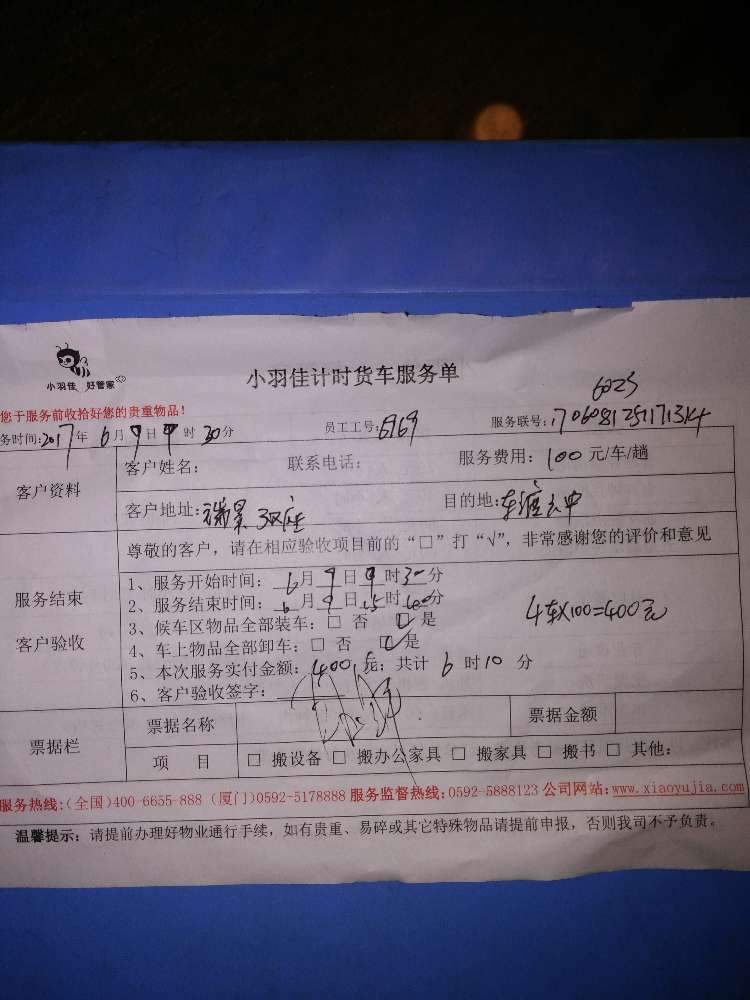 小羽佳 好管家
小羽佳计时货车服务单
您于服务前收拾好您的贵重物品！
6023
务时间:2017年 6月9日9时30分 员工工号:6969 服务联号:
客户资料
客户姓名: 联系电话: 服务费用: 100 元/车/趟
客户地址:瑞景 目的地:
服务结束
客户验收
尊敬的客户，请在相应验收项目前的“□”打“√”，非常感谢您的评价和意见
1、服务开始时间: 6月9日9时30分
2、服务结束时间: 6月9日15时40分
3、候车区物品全部装车: □ 否 ☑ 是
4、车上物品全部卸车: □ 否 ☑ 是
4车X100=400元
5、本次服务实付金额: 400 元; 共计 6 时10 分
6、客户验收签字:
票据栏
票据名称 票据金额
项 目 □ 搬设备 □ 搬办公家具 □ 搬家具 □ 搬书 □ 其他:
服务热线:(全国)400-6655-888 (厦门)0592-5178888 服务监督热线:0592-5888123 公司网站:www.xiaoyujia.com
温馨提示: 请提前办理好物业通行手续，如有贵重、易碎或其它特殊物品请提前申报，否则我司不予负责。